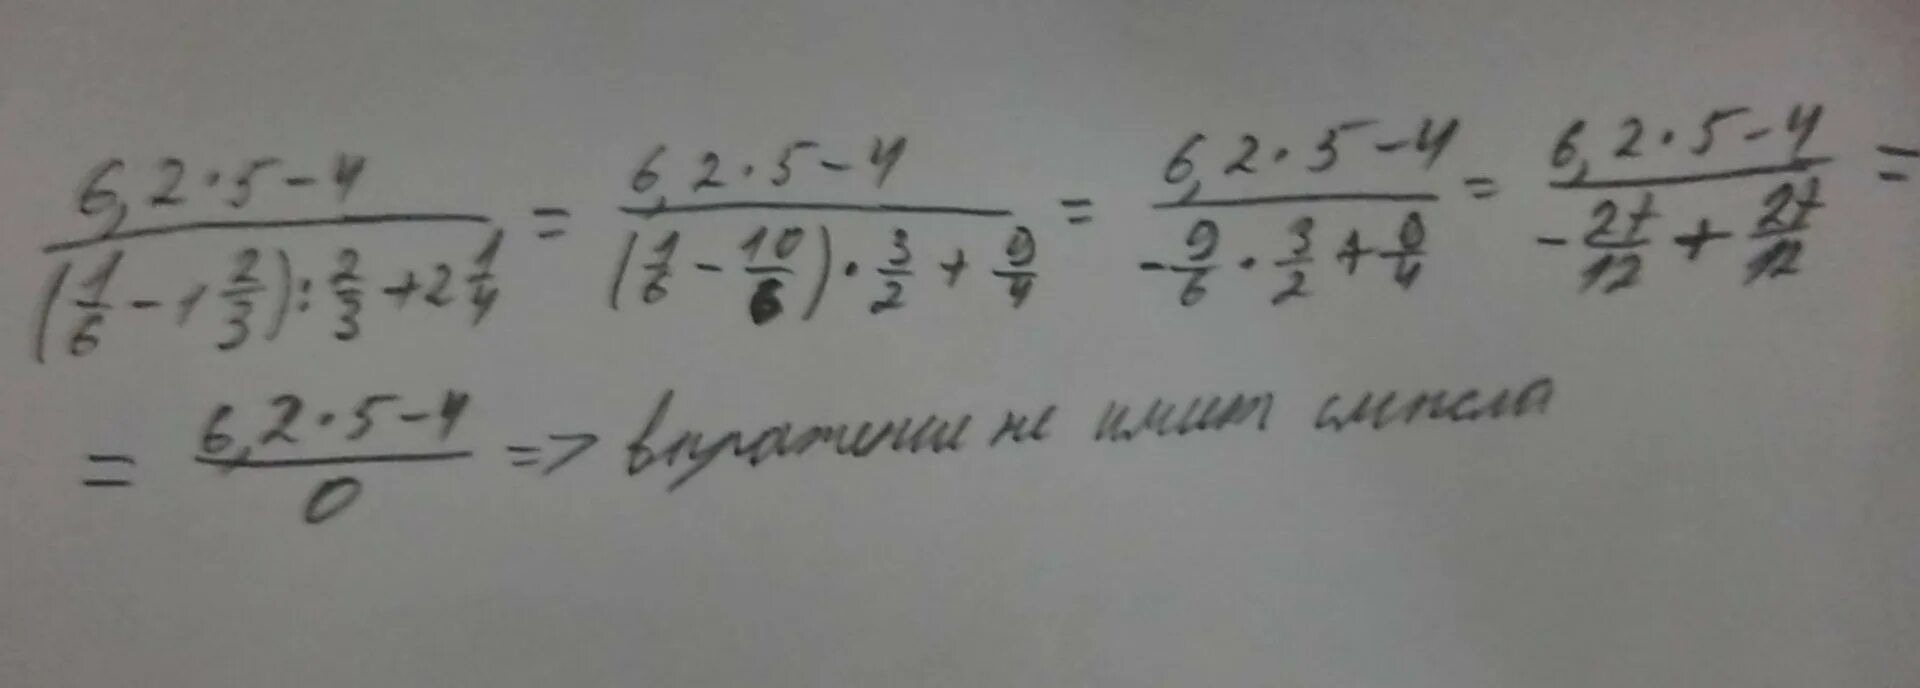 (6,2·5-4)/((1/6 - 1 2/3) : 2/3 + 2 1/4) = (6,2·5-4)/((1/6 - 10/6) · 3/2 + 9/4) = (6,2·5-4)/(-9/6 · 3/2 + 9/4) = (6,2·5-4)/(-27/12 + 27/12) =
= (6,2·5-4)/0 => выражение не имеет смысла